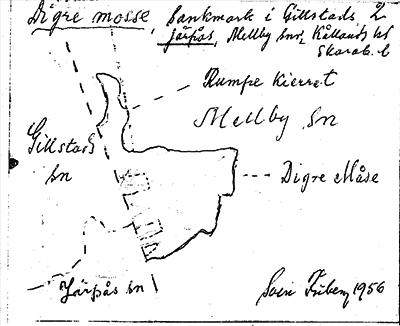 Digre mosse, Sankmark i Gillstads, 2
Järpås, Mellby snr, Kållands hd
Skarab. l
Rumpe Kierret
Mellby Sn
Gillstads
sn
Digre Måse
Järpås sn
1956